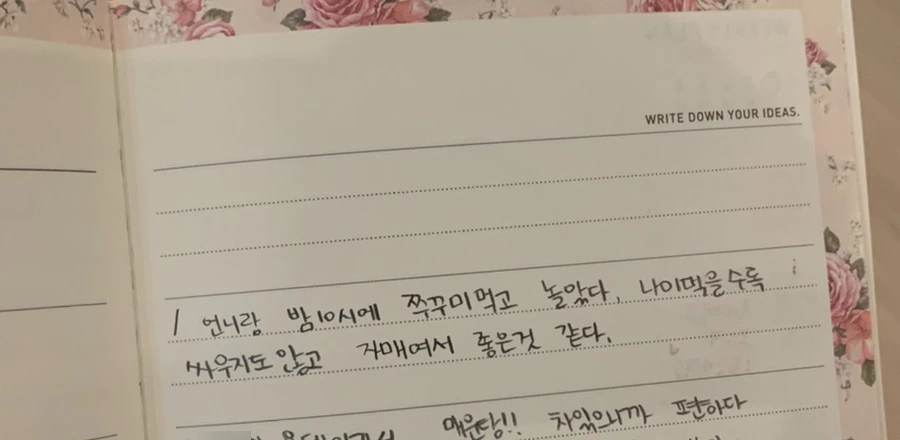 WRITE DOWN YOUR IDEAS.
/ 언니랑 밤10시에 쭈꾸미먹고 놀았다. 나이먹을수록
싸우지도 않고 자매여서 좋은것 같다.
매운탕!! 차있으니까 편하다